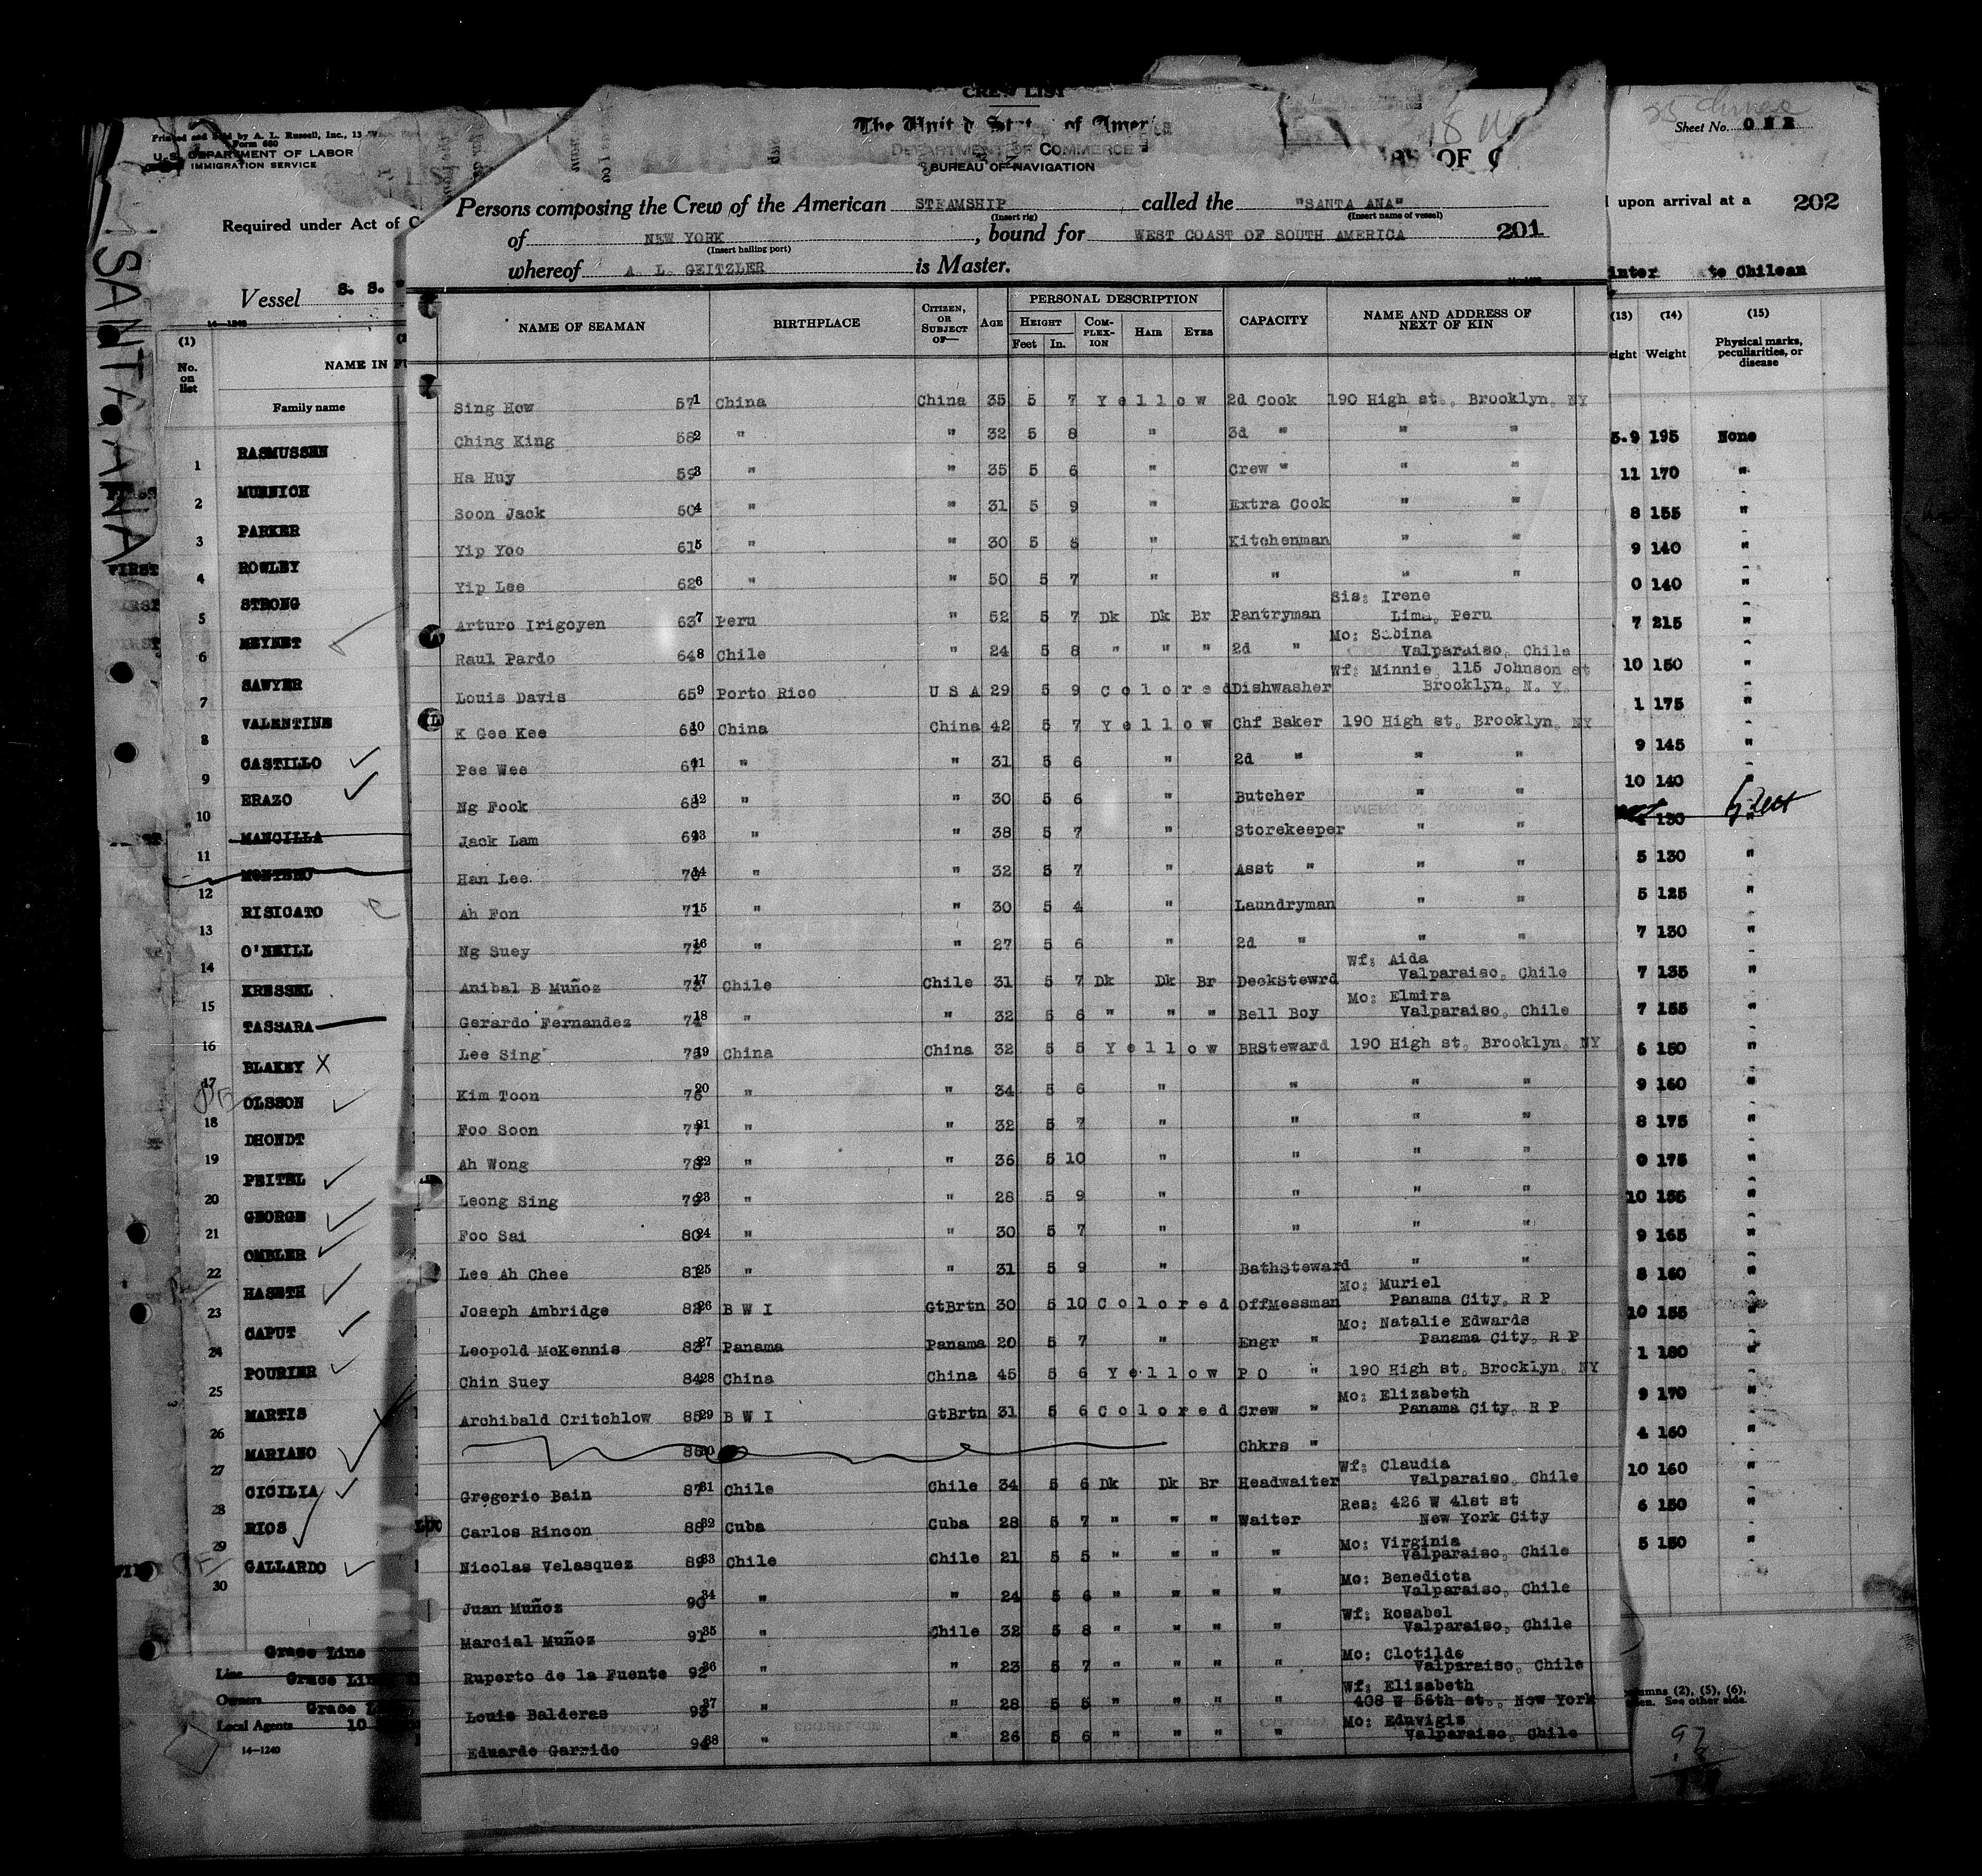 CREW LIST
The United States of America
DEPARTMENT OF COMMERCE
BUREAU OF NAVIGATION
Persons composing the Crew of the American STEAMSHIP called the "SANTA ANA"
(Insert rig) (Insert name of vessel)
of NEW YORK, bound for WEST COAST OF SOUTH AMERICA 201
(Insert hailing port)
whereof A. L. GEITZLER is Master.
NAME OF SEAMAN BIRTHPLACE CITIZEN, OR SUBJECT OF— AGE PERSONAL DESCRIPTION CAPACITY NAME AND ADDRESS OF NEXT OF KIN
HEIGHT COMPLEXION HAIR EYES
Feet In.
Sing How 57 1 China China 35 5 7 Yellow 2d Cook 190 High st., Brooklyn, NY
Ching King 58 2 " " 32 5 8 " 3d " " "
Ha Huy 59 3 " " 35 5 6 " Crew " " "
Soon Jack 60 4 " " 31 5 9 " Extra Cook " "
Yip Yoo 61 5 " " 30 5 " Kitchenman " "
Yip Lee 62 6 " " 50 5 7 " " " "
Arturo Irigoyen 63 7 Peru " 52 5 7 Dk Dk Br Pantryman Sis: Irene Lima, Peru
Raul Pardo 64 8 Chile " 24 5 8 " " " 2d " Mo: Sabina Valparaiso, Chile
Louis Davis 65 9 Porto Rico U S A 29 5 9 Colored Dishwasher Wf: Minnie, 115 Johnson st Brooklyn, N. Y.
K Gee Kee 66 10 China China 42 5 7 Yellow Chf Baker 190 High st, Brooklyn, NY
Pee Wee 67 11 " " 31 5 6 2d " " "
Ng Fook 68 12 " " 30 5 6 " Butcher " "
Jack Lam 69 13 " " 38 5 7 " Storekeeper " "
Han Lee 70 14 " " 32 5 7 " Asst " " "
Ah Fon 71 15 " " 30 5 4 " Laundryman " "
Ng Suey 72 16 " " 27 5 6 " 2d " " "
Anibal B Muñoz 73 17 Chile Chile 31 5 7 Dk Dk Br DeckStewrd Wf: Aida Valparaiso, Chile
Gerardo Fernandez 74 18 " " 32 5 6 " " " Bell Boy Mo: Elmira Valparaiso, Chile
Lee Sing 75 19 China China 32 5 5 Yellow BRSteward 190 High st, Brooklyn, NY
Kim Toon 76 20 " " 34 5 6 " " " "
Foo Soon 77 21 " " 32 5 7 " " " "
Ah Wong 78 22 " " 36 5 10 " " " "
Leong Sing 79 23 " " 28 5 9 " " " "
Foo Sai 80 24 " " 30 5 7 " " " "
Lee Ah Chee 81 25 " " 31 5 9 " BathSteward " "
Joseph Ambridge 82 26 B W I GtBrtn 30 5 10 Colored OffMessman Mo: Muriel Panama City, R P
Leopold McKennis 83 27 Panama Panama 20 5 7 " Engr " Mo: Natalie Edwards Panama City, R P
Chin Suey 84 28 China China 45 5 6 Yellow P O " 190 High st, Brooklyn, NY
Archibald Critchlow 85 29 B W I GtBrtn 31 5 6 Colored Crew " Mo: Elizabeth Panama City, R P
86 30 Chkrs "
Gregorio Bain 87 31 Chile Chile 34 5 6 Dk Dk Br Headwaiter Wf: Claudia Valparaiso, Chile
Carlos Rincon 88 32 Cuba Cuba 28 5 7 " " " Waiter Res: 426 W 41st st New York City
Nicolas Velasquez 89 33 Chile Chile 21 5 5 " " " " Mo: Virginia Valparaiso, Chile
Juan Muñoz 90 34 " " 24 5 6 " " " " Mo: Benedicta Valparaiso, Chile
Marcial Muñoz 91 35 " Chile 32 5 8 " " " " Wf: Rosabel Valparaiso, Chile
Ruperto de la Fuente 92 36 " " 23 5 7 " " " " Mo: Clotilde Valparaiso, Chile
Louis Balderas 93 37 " " 28 5 5 " " " " Wf: Elizabeth 408 W 56th st., New York
Eduardo Garrido 94 38 " " 26 5 6 " " " " Mo: Eduvigis Valparaiso, Chile
Printed and Sold by A. L. Russell, Inc., 13
Form 680
U. S. DEPARTMENT OF LABOR
IMMIGRATION SERVICE
Required under Act of C
Vessel S. S. "
14—1240
SANTA ANA
(1)
No. on list
NAME IN FU
Family name
1 RASMUSSEN
2 MUNNICH
3 PARKER
4 ROWLEY
5 STRONG
6 MEYNET
7 SAWYER
8 VALENTINE
9 CASTILLO
10 ERAZO
11 MANCILLA
12 MONTERO
13 RISICATO
14 O'NEILL
15 KRESSEL
16 TASSARA
17 BLAKEY
18 OLSSON
19 DHONDT
20 PEITEL
21 GEORGE
22 OMBLER
23 HASETH
24 CAPUT
25 POURIER
26 MARTIS
27 MARIANO
28 CICILIA
29 RIOS
30 GALLARDO
Line Grace Line
Owners Grace Lin
Local Agents Grace L
10
14—1240
OF C
25 Chinese
Sheet No. ONE
upon arrival at a 202
te Chilean
(13) (14) (15)
eight Weight Physical marks, peculiarities, or disease
5-9 195 None
11 170 "
8 155 "
9 140 "
0 140 "
7 215 "
10 150 "
1 175 "
9 145 "
10 140 "
130 "
5 130 "
5 125 "
7 130 "
7 135 "
7 155 "
6 150 "
9 160 "
8 175 "
0 175 "
10 156 "
9 165 "
8 160 "
10 155 "
1 180 "
9 170 "
4 160 "
10 160 "
6 150 "
5 150 "
umns (2), (5), (6),
en. See other side.